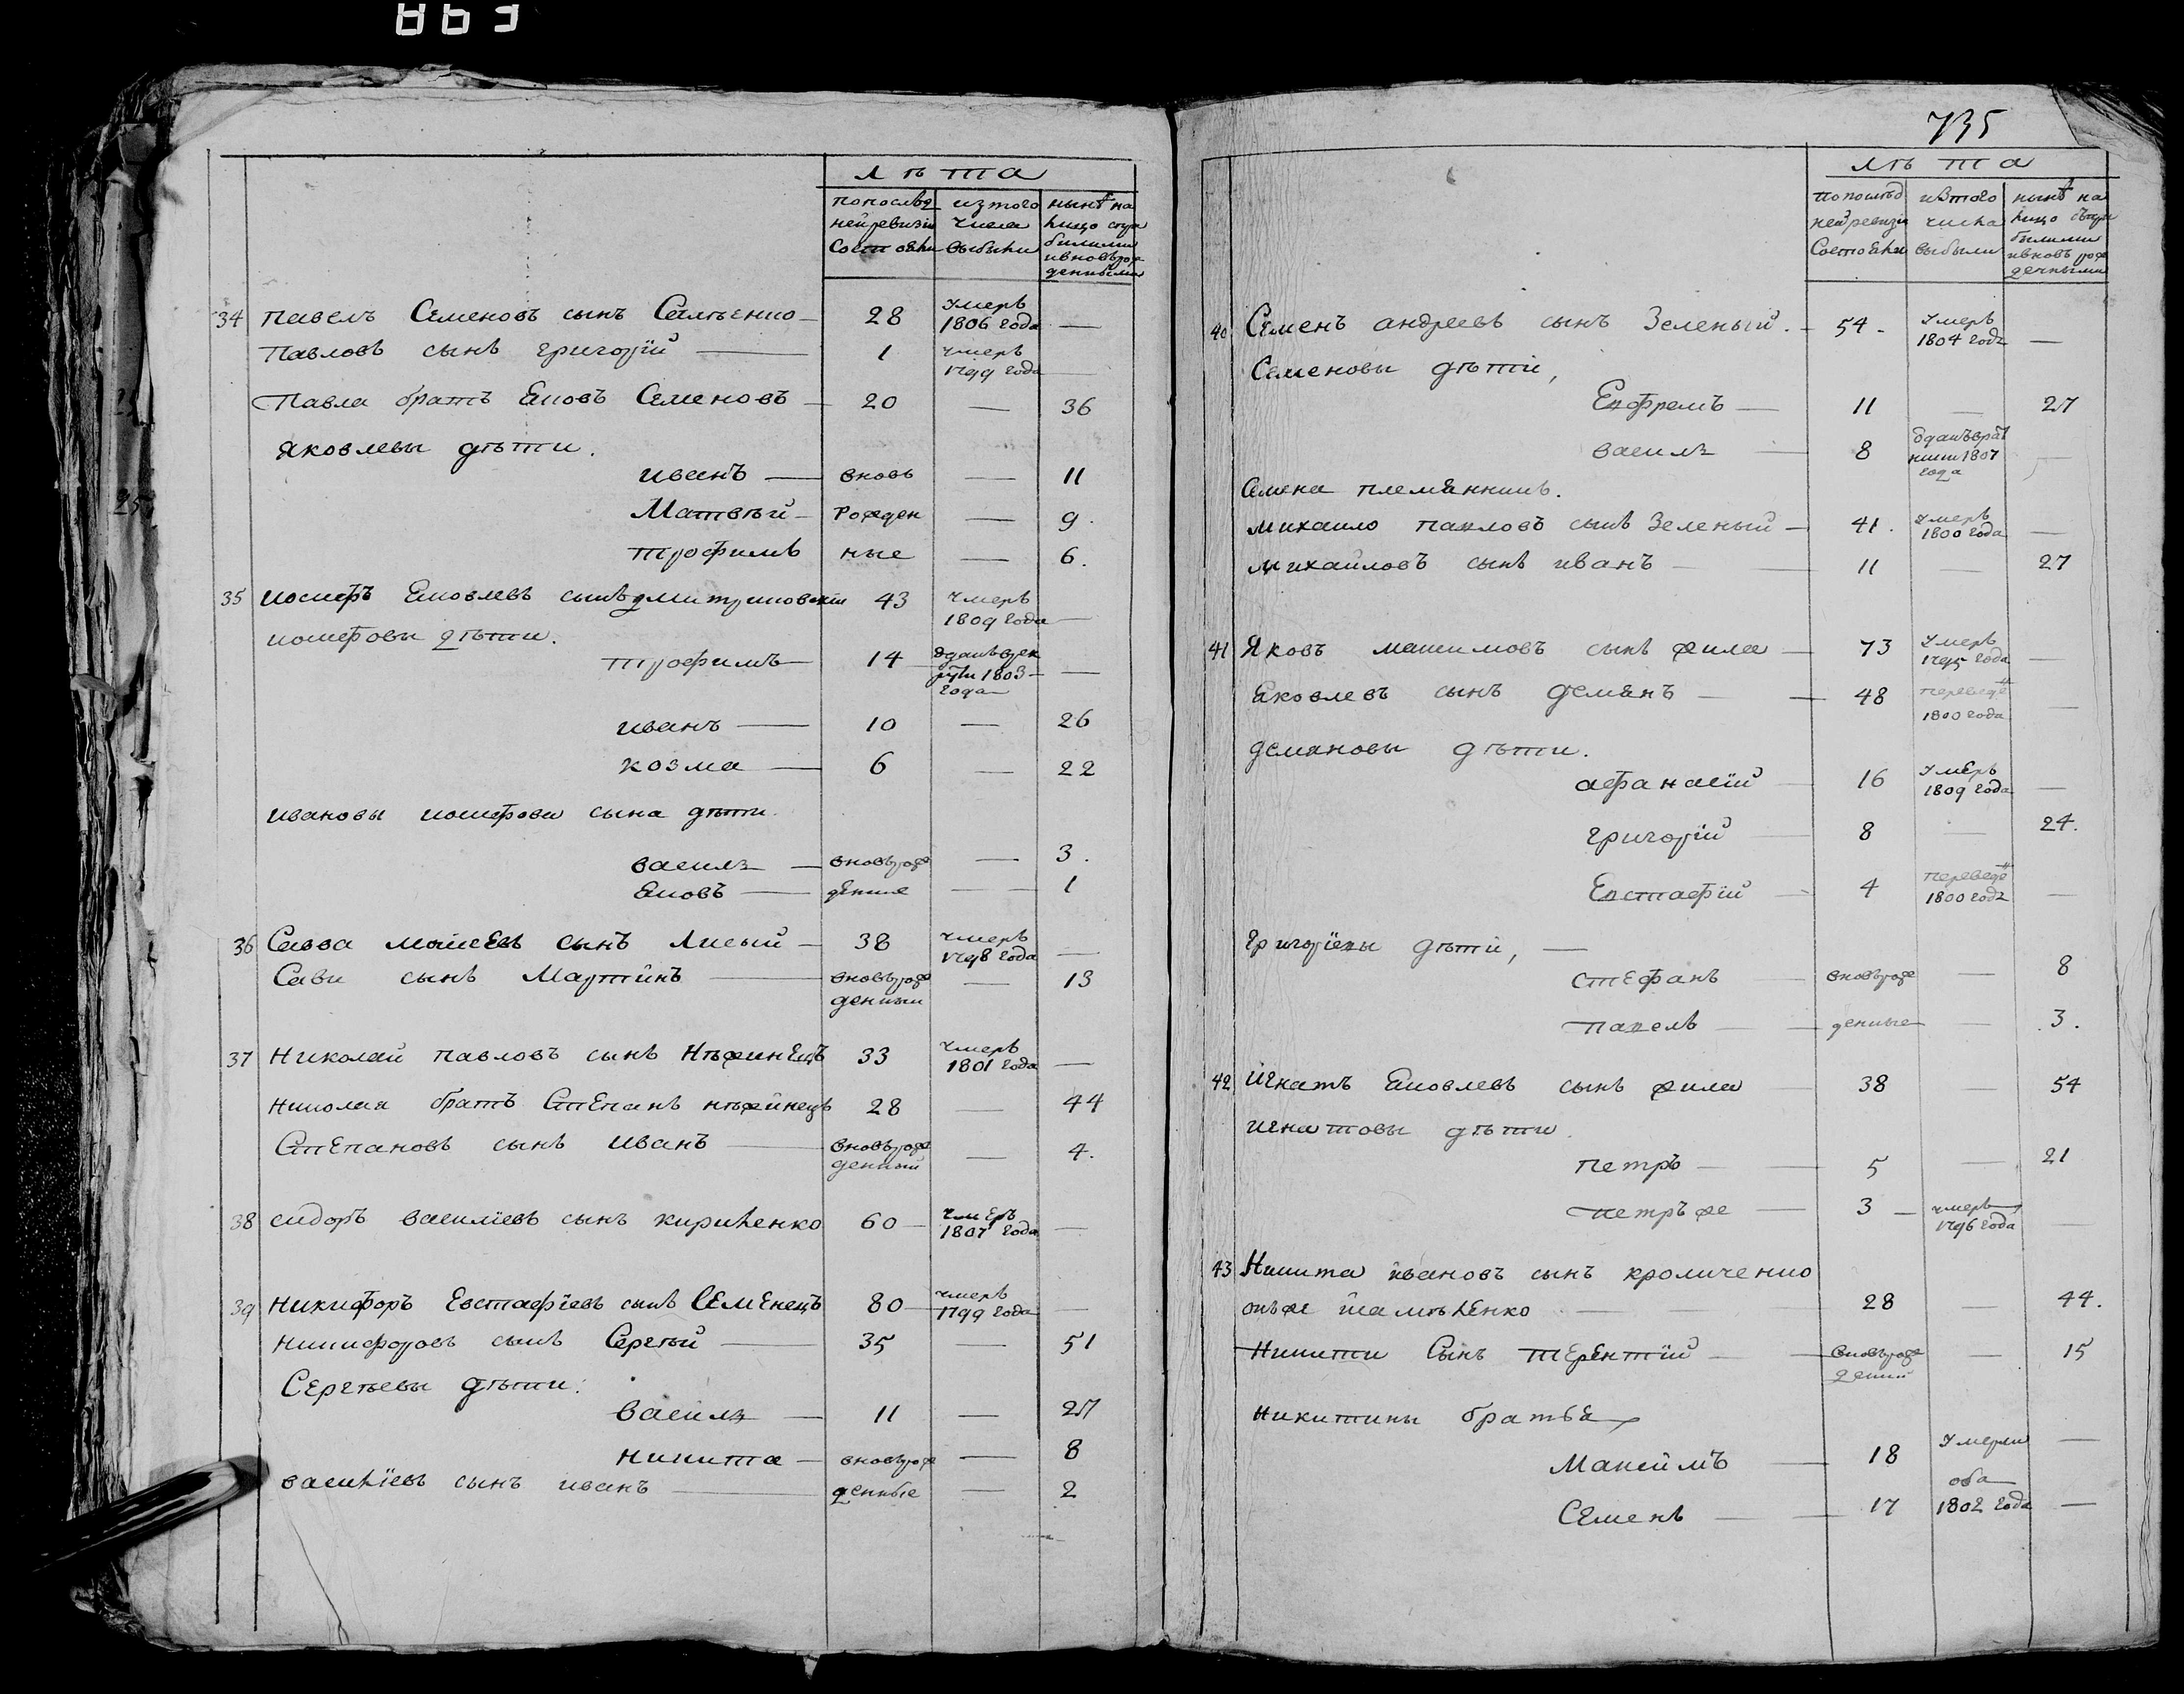 863
лѣта
попослѣд нейревизіи Состояли
изтого числа выбыли
нынѣ на лицо сприбылыми ивновьрожденными
34 павелъ Семеновъ сынъ 28 умеръ 1806 года —
Павловъ сынъ григорій — 1 умеръ 1799 года —
Павла братъ Яковъ Семеновъ — 20 — 36
яковлевы дѣти.
иванъ — вновь — 11
Матвѣй — рожден — 9.
трофимъ ные — 6.
35 иосифъ Яковлевъ сынъ дмитриковскій 43 умеръ 1809 года —
иосифовы дѣти.
трофимъ — 14 отданъ в рекруты 1803 года —
иванъ — 10 — 26
козма — 6 — 22
ивановы иосифова сына дѣти.
василь — вновьрож — 3.
Яковъ — денные — 1
36 Савва моисеевъ сынъ Лисый — 38 умеръ 1798 года —
Савы сынъ Мартинъ — вновьрожденный — 13
37 Николай павловъ сынъ Нѣжинецъ 33 умеръ 1801 года —
николая братъ Степанъ нѣжинецъ 28 — 44
Степановъ сынъ иванъ — вновьрожденный — 4.
38 сидоръ василіевъ сынъ кириленко 60 — умеръ 1807 года —
39 никифоръ Евстафіевъ сынъ Семенецъ 80 — умеръ 1799 года —
никифоровъ сынъ Сергѣй — 35 — 51
Сергѣевы дѣти.
василь — 11 — 27
никита — вновьрож — 8
василіевъ сынъ иванъ — денные — 2
735
лѣта
попослѣд нейревизіи Состояли
изтого числа выбыли
нынѣ на лицо сприбылыми ивновь рожденными
40 Семенъ андреевъ сынъ Зеленый. — 54 — умеръ 1804 года —
Семеновы дѣти,
Ефремъ — 11 — 27
василь — 8 1807 года —
Семена племянникъ.
михайло павловъ сынъ Зеленый — 41. умеръ 1800 года —
михайловъ сынъ иванъ — 11 — 27
41 Яковъ максимовъ сынъ жила — 73 умеръ 1795 года —
Яковлевъ сынъ демянъ — 48 переведен 1800 года —
демяновы дѣти.
афанасій — 16 умеръ 1809 года —
григорій — 8 — 24.
Евстафій — 4 переведен 1800 года —
григоріевы дѣти, —
стефанъ — вновьрож — 8
павелъ — денные — 3.
42 игнатъ Яковлевъ сынъ жила 38 54
игнатовы дѣти.
петръ — 5 — 21
петръ же — 3 — умеръ 1796 года —
43 Никита ивановъ сынъ кроличенко
онъ же — 28 44.
Никиты Сынъ терентій — вновьрожденый — 15
никитины братья
Максимъ — 18 умерли —
оба
Семенъ — 17 1802 года —